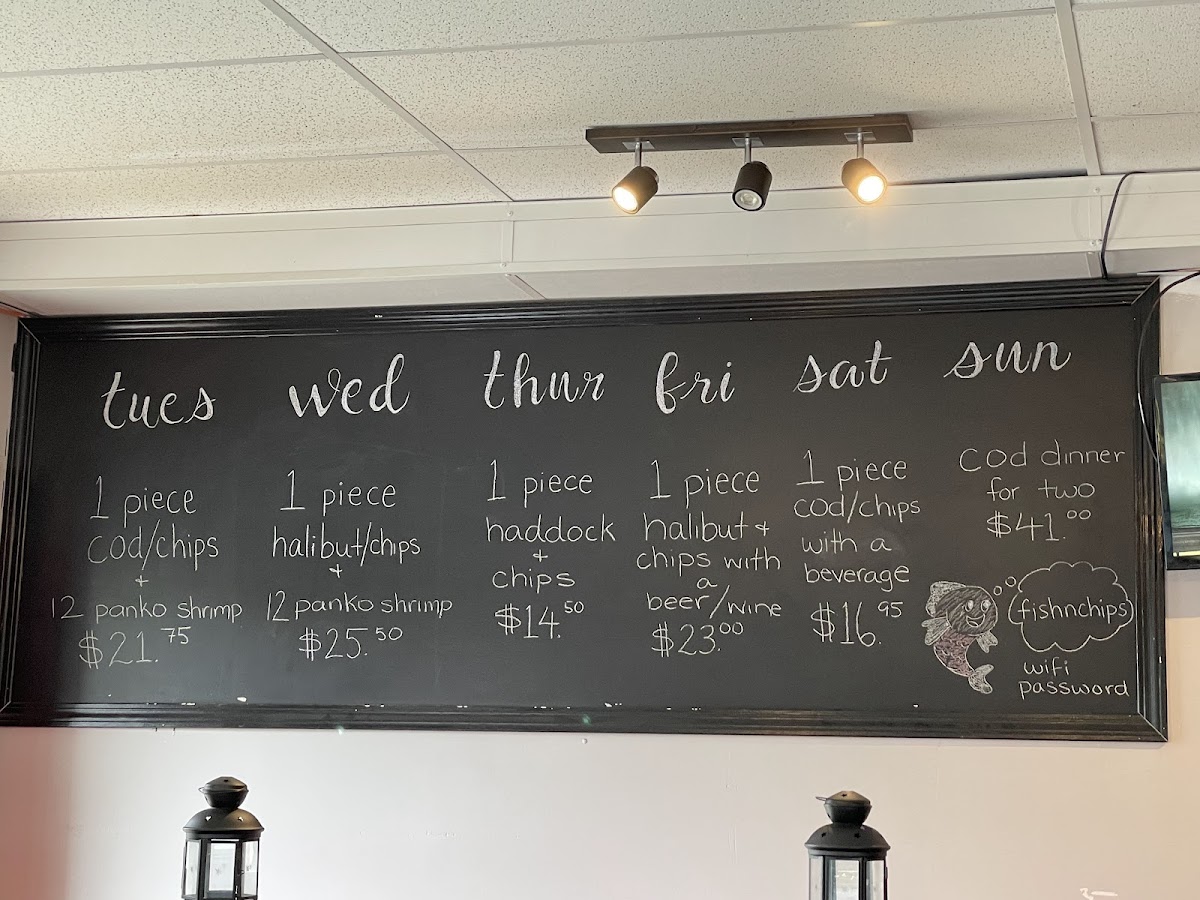 tues
1 piece
cod/chips
+
12 panko shrimp
$21.75
wed
1 piece
halibut/chips
+
12 panko shrimp
$25.50
thur
1 piece
haddock
+
chips
$14.50
fri
1 piece
halibut +
chips with
a
beer/wine
$23.00
sat
1 piece
cod/chips
with a
beverage
$16.95
sun
cod dinner
for two
$41.00
fishnchips
wifi
password